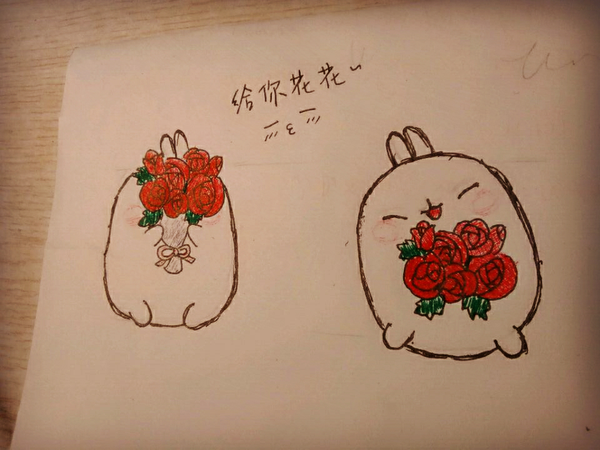 给你花花~